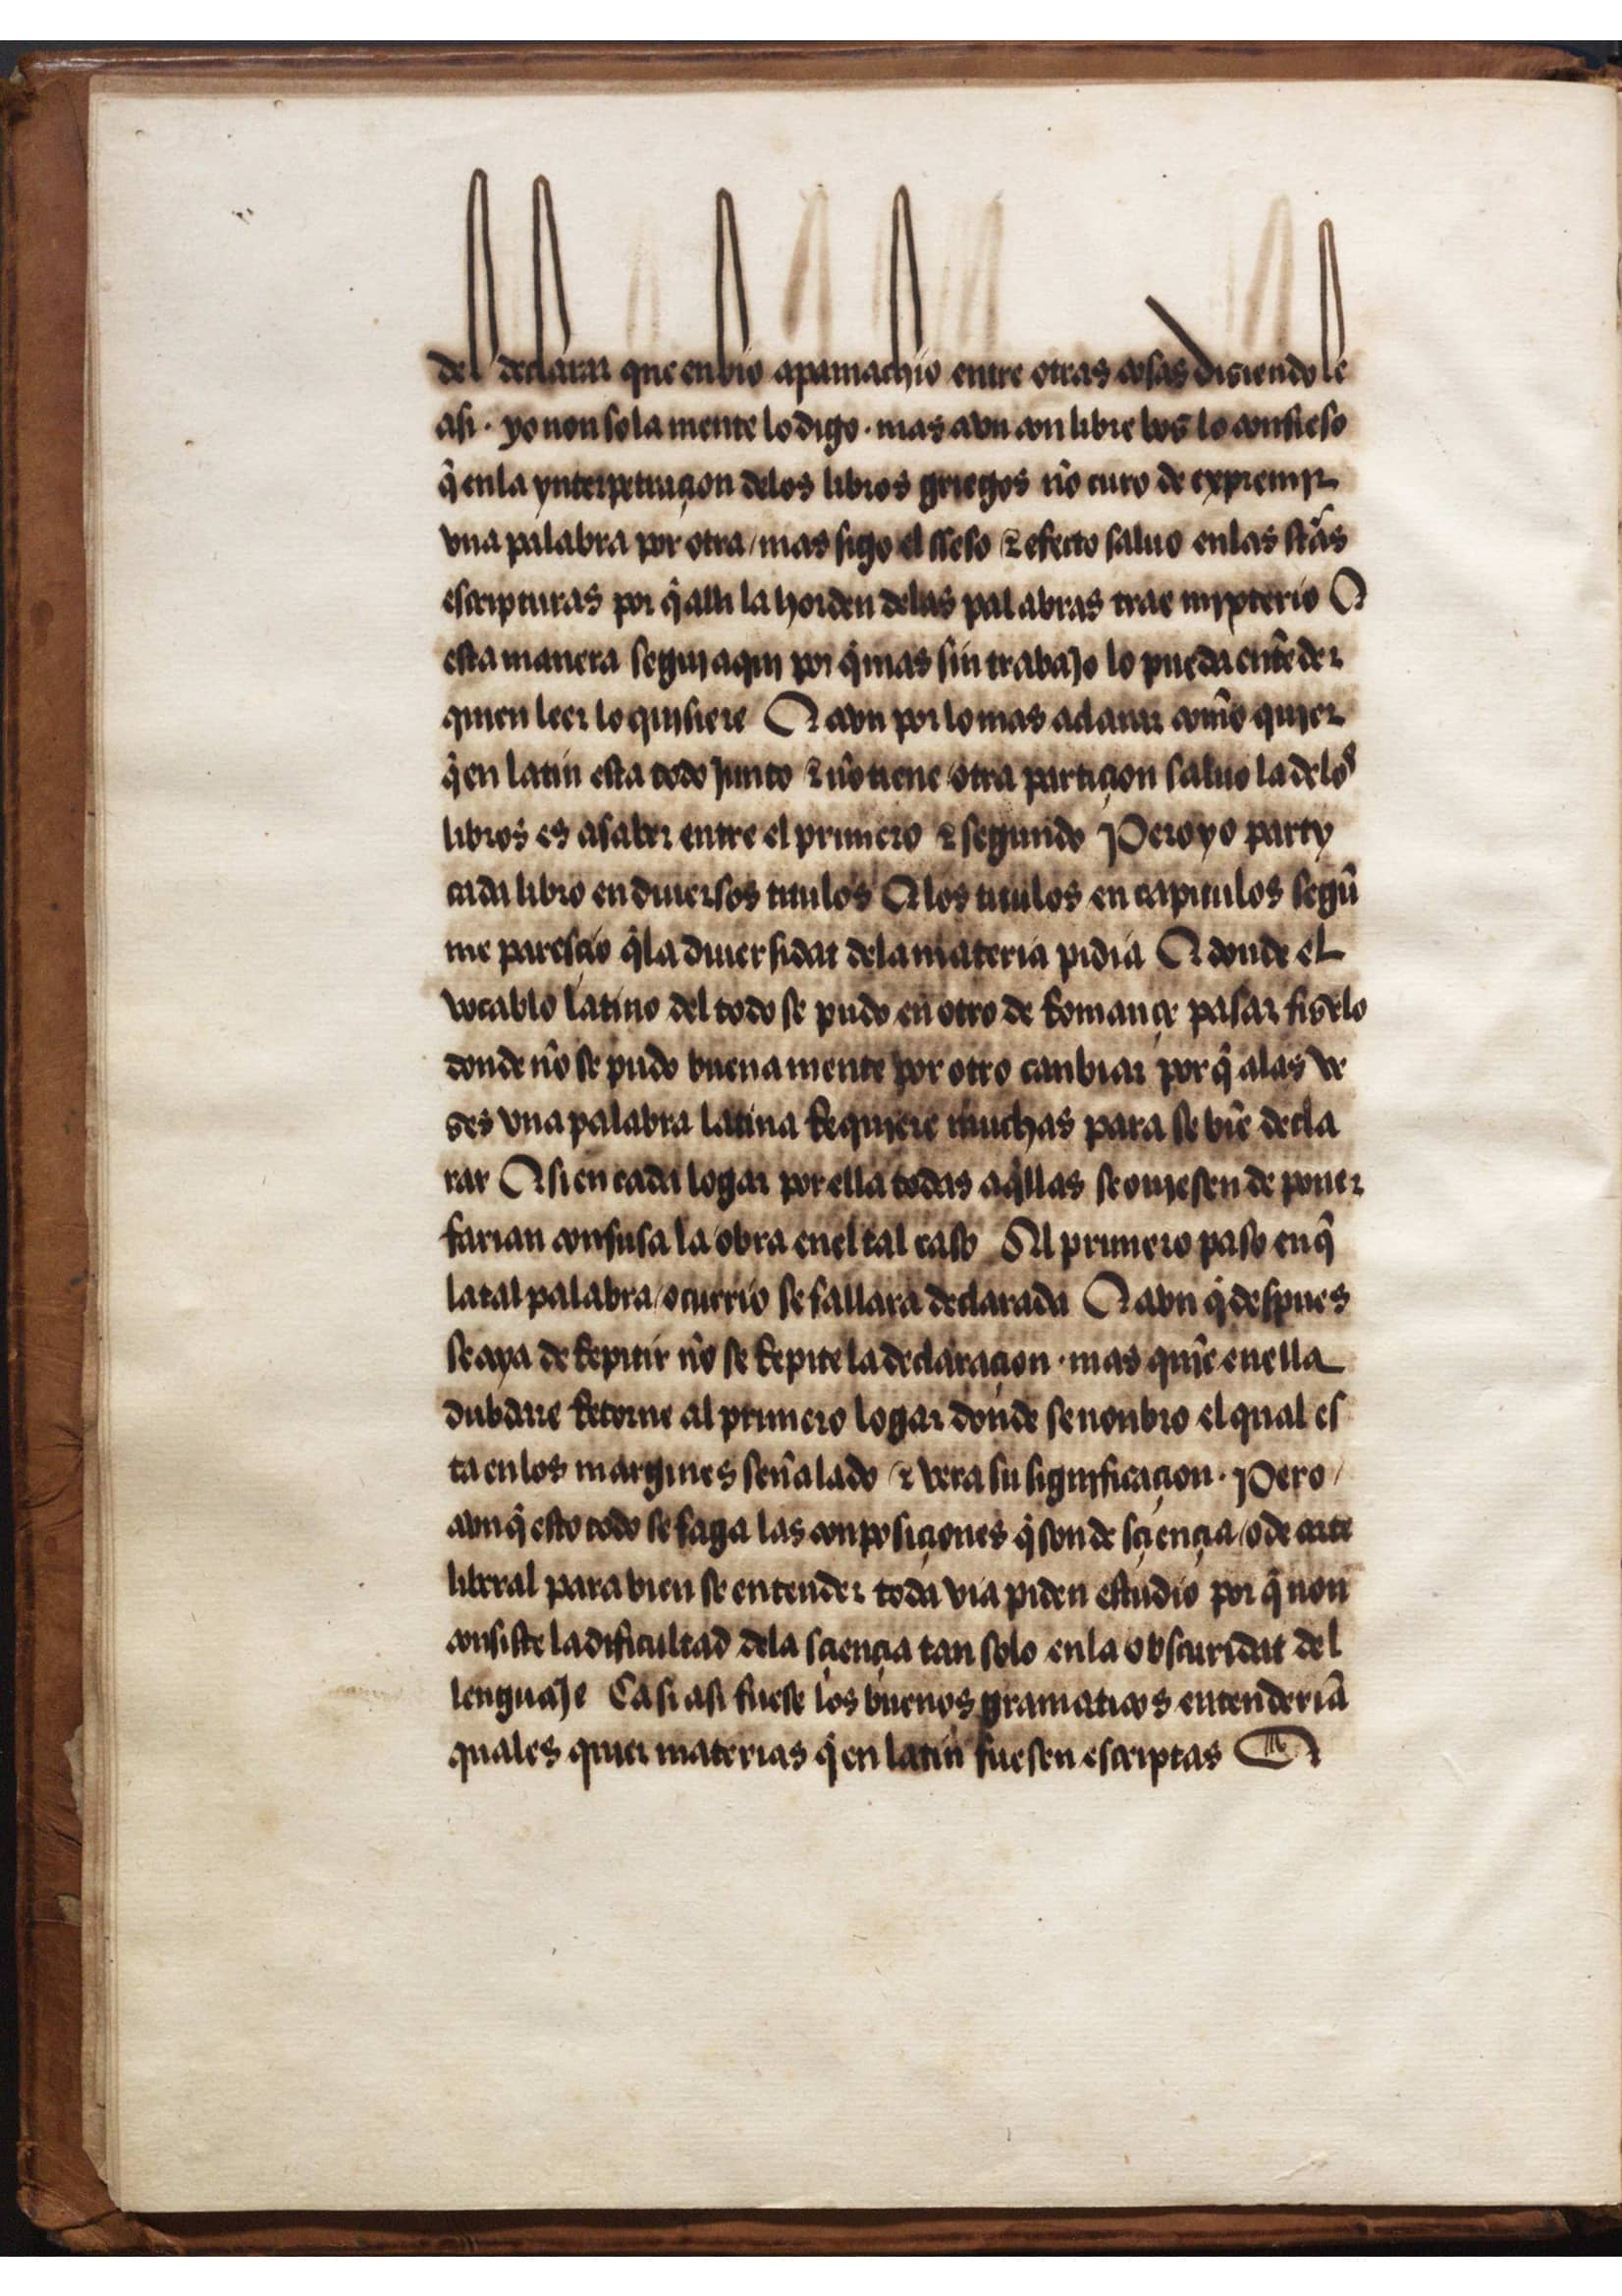 del declarar que enbio apamachio entre otras cosas disiendole
asi · yo non sola mente lo digo · mas avn con libre bos lo confieso
q̃ en la ynterpetraçion delos libros griegos nõ curo de expremyr
vna palabra por otra / mas sigo el seso ⁊ efecto saluo enlas stãs
escripturas por q̃ alli la horden delas palabras trae mysterio E
esta manera seguj aquj por q̃ mas sin trabajo lo pueda entẽder
quien leer lo quisiere E avn por lo mas aclarar comõ qujer
q̃ en latin esta todo junto ⁊ nõ tiene otra partiçion saluo la delos
libros es asaber entre el primero ⁊ segundo Pero yo party
cada libro en diuersos titulos E los titulos en capitulos segũ
me paresçio q̃ la diuersidat dela materia pidia E donde el
vocablo latino del todo se pudo en otro de Romançe pasar fiselo
donde nõ se pudo buena mente por otro canbiar por q̃ alas ve
ses vna palabra latina Requjere muchas para se biẽ decla
rar E si en cada logar por ella todas aq̃llas se oujesen de poner
farian confusa la obra enel tal caso Al primero paso en q̃
la tal palabra / ocurrio se fallara declarada E avn q̃ despues
se aya de Repitir nõ se Repite la declaraçion · mas quiẽ enella
dubdare Retorne al primero logar donde se nonbro el qual es
ta enlos margines señalado ⁊ vera su significaçion · Pero /
avn q̃ esto todo se faga las conposiçiones q̃ son de sçiençia / o de arte
liberal para bien se entender toda via piden estudio por q̃ non
consiste la dificultad dela sçiençia tan solo enla obscuridat del
lenguaje Ca si asi fuese los buenos gramaticos entenderiã
quales quier materias q̃ en latin fuesen escriptas E